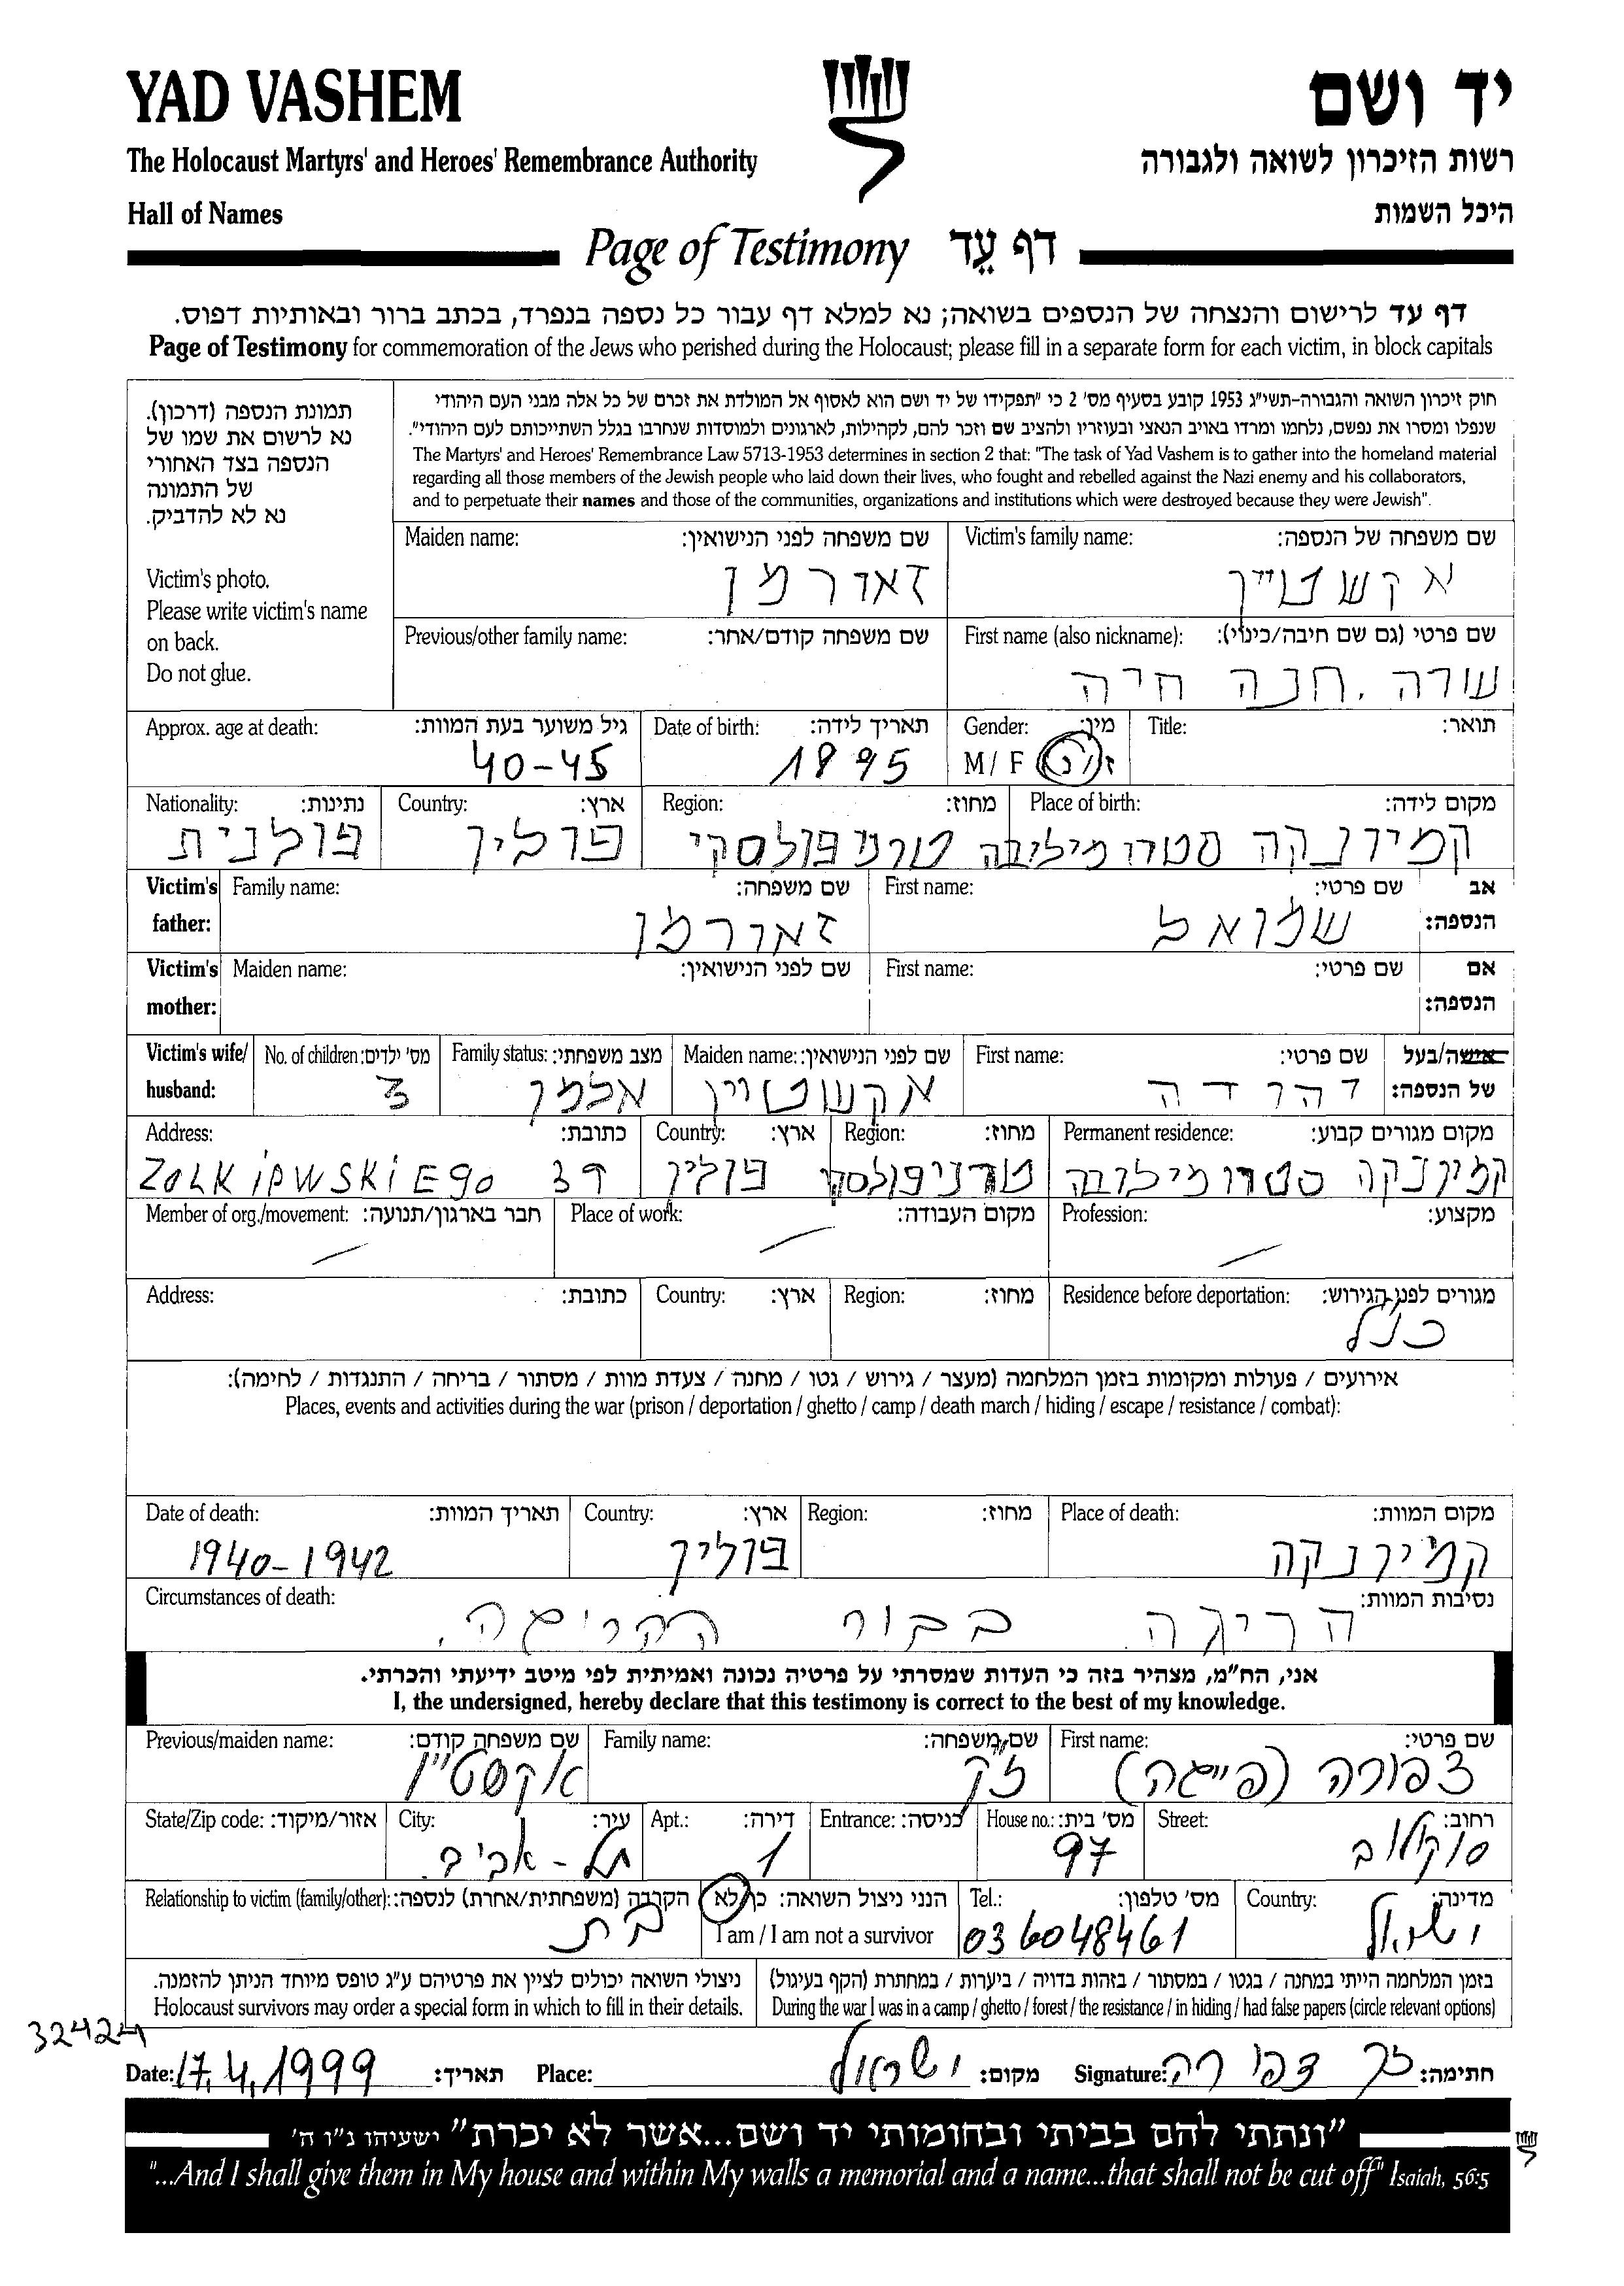 YAD VASHEM
יד ושם
The Holocaust Martyrs' and Heroes' Remembrance Authority
רשות הזיכרון לשואה ולגבורה
Hall of Names
היכל השמות
Page of Testimony דף עֵד
דף עד לרישום והנצחה של הנספים בשואה; נא למלא דף עבור כל נספה בנפרד, בכתב ברור ובאותיות דפוס.
Page of Testimony for commemoration of the Jews who perished during the Holocaust; please fill in a separate form for each victim, in block capitals
תמונת הנספה (דרכון).
נא לרשום את שמו של
הנספה בצד האחורי
של התמונה
נא לא להדביק.
Victim's photo.
Please write victim's name
on back.
Do not glue.
חוק זיכרון השואה והגבורה-תשי״ג 1953 קובע בסעיף מס׳ 2 כי ״תפקידו של יד ושם הוא לאסוף אל המולדת את זכרם של כל אלה מבני העם היהודי
שנפלו ומסרו את נפשם, נלחמו ומרדו באויב הנאצי ובעוזריו ולהציב שם וזכר להם, לקהילות, לארגונים ולמוסדות שנחרבו בגלל השתייכותם לעם היהודי״.
The Martyrs' and Heroes' Remembrance Law 5713-1953 determines in section 2 that: "The task of Yad Vashem is to gather into the homeland material
regarding all those members of the Jewish people who laid down their lives, who fought and rebelled against the Nazi enemy and his collaborators,
and to perpetuate their names and those of the communities, organizations and institutions which were destroyed because they were Jewish".
Victim's family name: שם משפחה של הנספה:
אקשטיין
Maiden name: שם משפחה לפני הנישואין:
זאורמן
First name (also nickname): שם פרטי (גם שם חיבה/כינוי):
שרה .חנה חיה
Previous/other family name: שם משפחה קודם/אחר:
Title: תואר:
Gender: מין:
M / F ז/נ
Date of birth: תאריך לידה:
1895
Approx. age at death: גיל משוער בעת המוות:
40-45
Place of birth: מקום לידה:
קמיונקה סטרומילובה
Region: מחוז:
טרנופולסקי
Country: ארץ:
פולין
Nationality: נתינות:
פולנית
Victim's father: אב הנספה:
First name: שם פרטי:
שמואל
Family name: שם משפחה:
זאורמן
Victim's mother: אם הנספה:
First name: שם פרטי:
Maiden name: שם לפני הנישואין:
Victim's wife/ husband: אישה/בעל של הנספה:
First name: שם פרטי:
Maiden name: שם לפני הנישואין:
אקשטיין
Family status: מצב משפחתי:
אלמן
No. of children: מס׳ ילדים:
3
Permanent residence: מקום מגורים קבוע:
קמיונקה סטרומילובה
Region: מחוז:
Country: ארץ:
פולין
Address: כתובת:
39
Profession: מקצוע:
Place of work: מקום העבודה:
Member of org./movement: חבר בארגון/תנועה:
Residence before deportation: מגורים לפני הגירוש:
כנ״ל
Region: מחוז:
Country: ארץ:
Address: כתובת:
אירועים / פעולות ומקומות בזמן המלחמה (מעצר / גירוש / גטו / מחנה / צעדת מוות / מסתור / בריחה / התנגדות / לחימה):
Places, events and activities during the war (prison / deportation / ghetto / camp / death march / hiding / escape / resistance / combat):
Place of death: מקום המוות:
קמיונקה
Region: מחוז:
Country: ארץ:
פולין
Date of death: תאריך המוות:
1940-1942
Circumstances of death: נסיבות המוות:
הריגה בבור
אני, הח״מ, מצהיר בזה כי העדות שמסרתי על פרטיה נכונה ואמיתית לפי מיטב ידיעתי והכרתי.
I, the undersigned, hereby declare that this testimony is correct to the best of my knowledge.
First name: שם פרטי:
צפורה (פייגה)
Family name: שם משפחה:
זק
Previous/maiden name: שם משפחה קודם:
אקסטיין
Street: רחוב:
סוקולוב
House no.: מס׳ בית:
97
Entrance: כניסה:
Apt.: דירה:
1
City: עיר:
תל-אביב
State/Zip code: אזור/מיקוד:
Country: מדינה:
ישראל
Tel.: מס׳ טלפון:
03 6048461
הנני ניצול השואה: כן/לא
I am / I am not a survivor
Relationship to victim (family/other): הקרבה (משפחתית/אחרת) לנספה:
בת
בזמן המלחמה הייתי במחנה / בגטו / במסתור / בזהות בדויה / ביערות / במחתרת (הקף בעיגול)
During the war I was in a camp / ghetto / forest / the resistance / in hiding / had false papers (circle relevant options)
ניצולי השואה יכולים לציין את פרטיהם ע״ג טופס מיוחד הניתן להזמנה.
Holocaust survivors may order a special form in which to fill in their details.
32424
Date: 17.4.1999 תאריך: Place: ישראל מקום: Signature: זק צפורה חתימה:
״ונתתי להם בביתי ובחומותי יד ושם...אשר לא יכרת״ ישעיהו נ״ו ה׳
"...And I shall give them in My house and within My walls a memorial and a name...that shall not be cut off" Isaiah, 56:5